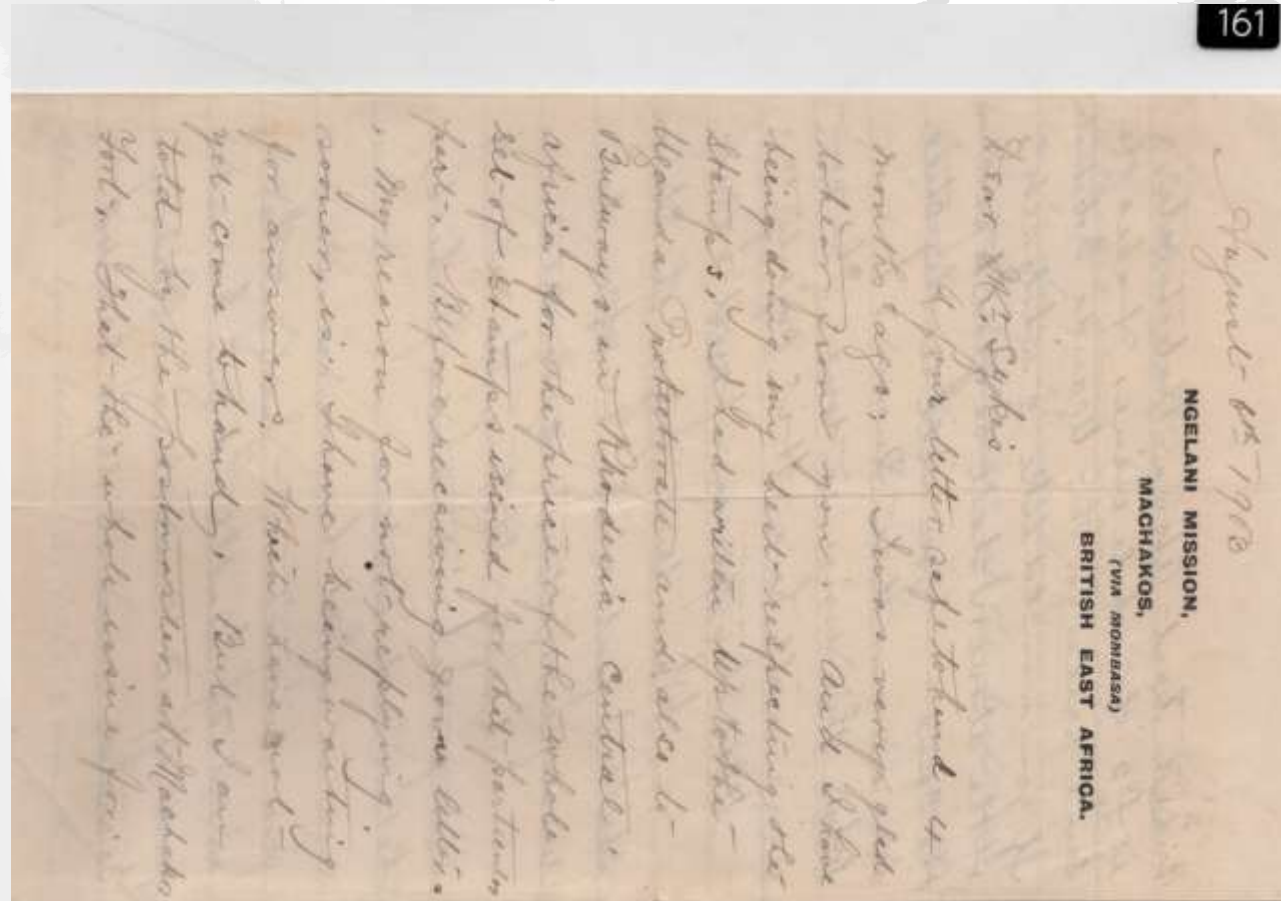 161
August 6th 1903
NGELANI MISSION,
MACHAKOS,
(VIA MOMBASA)
BRITISH EAST AFRICA.
Dear Mr. Sykis
Your letter safe to hand 4
months ago; I was very glad
to hear from you. And I have
being doing my best- respecting the-
Stamps. I had written up to the-
Uganda Protectorate and also to-
Buluwayo in Rhodesia Central
africa for the price of the whole
set-of stamps issued for that- particular
part-. Before receiving your letter.
My reason for not- replying
sooner, is I have being waiting
for answers. Which have not-
yet- come to hand. But- I am
told by the postmaster at Machakos
Fort-. That- the- whole issue for